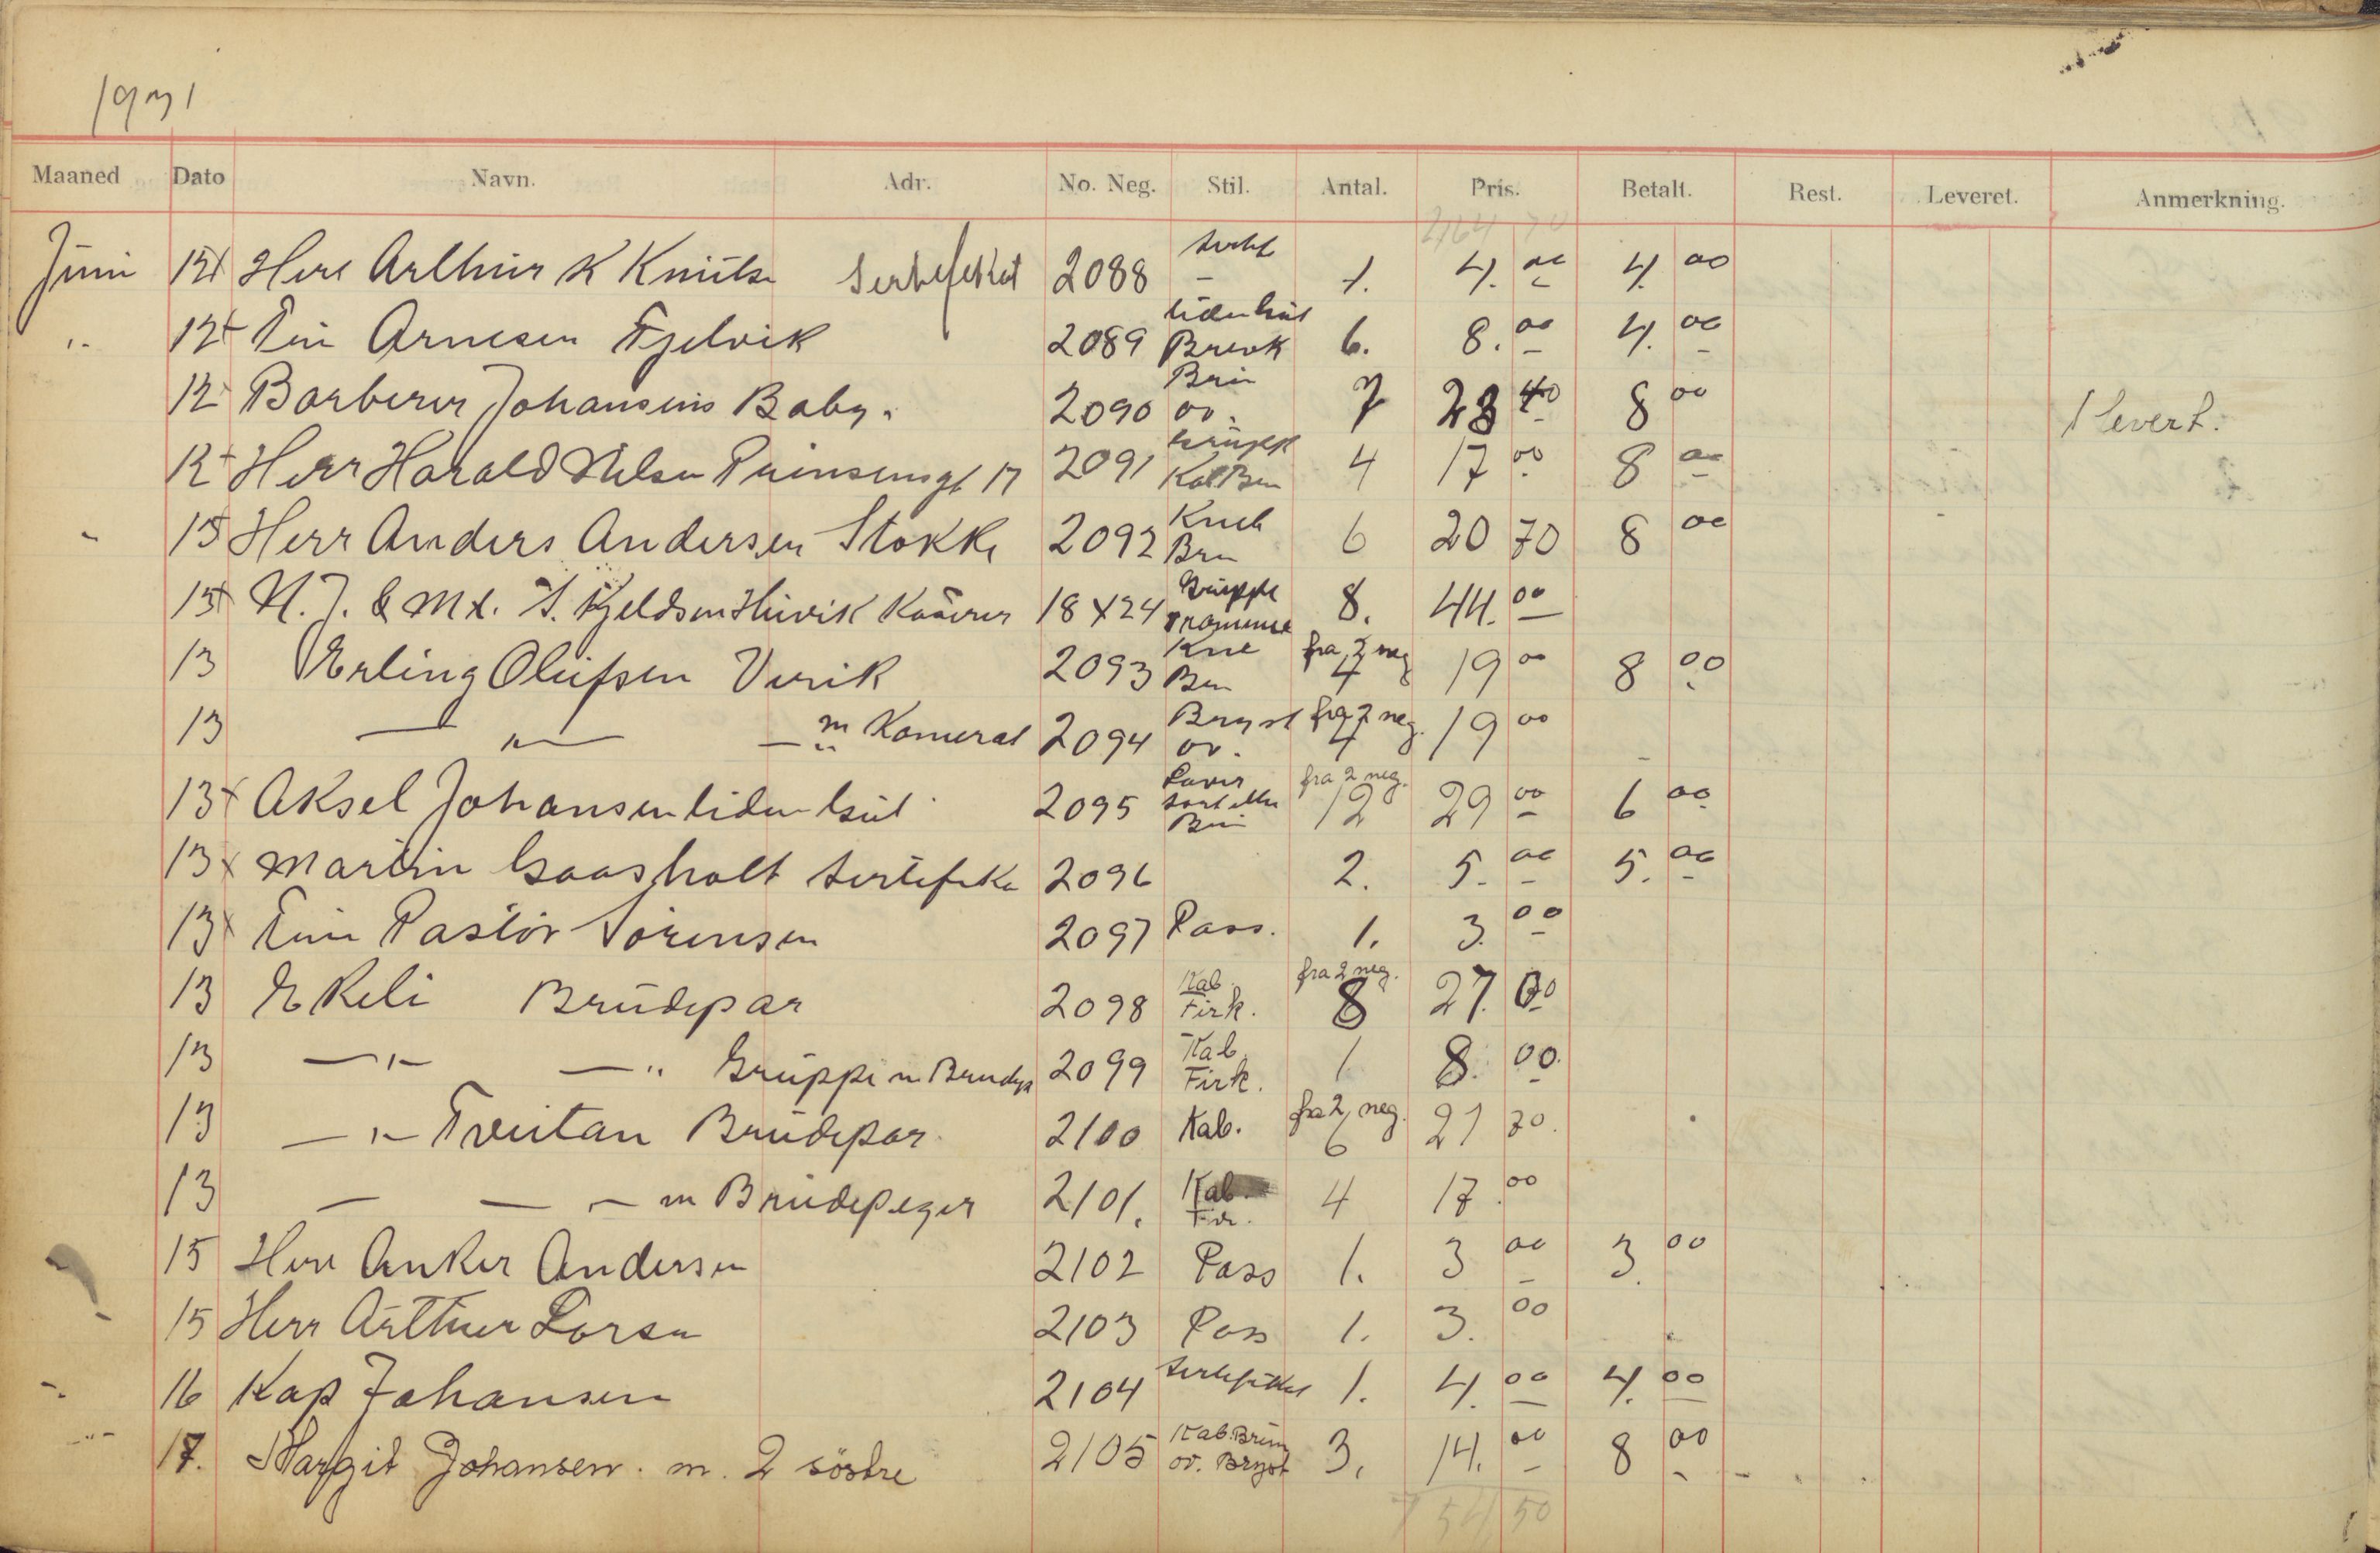 1931
Maaned Dato Navn. Adr. No. Neg. Stil. Antal. Pris. Betalt. Rest. Leveret. Anmerkning.
Juni 12 Herr Arthur K Knutsen Sertefekat 2088 1. 4. 00 4. 00
12 Arnesen Fjelvik 2089 6. 8. 00 4. 00
12 Barberer Johansens Baby. 2090 Brun ov. 7 23 40 8 00 1 levert.
12 Herr Harald Nilsen Prinsensgt 17 2091 4 17 00 8 00
15 Herr Anders Andersen Stokke 2092 Brun 6 20 70 8 00
15 18 x 24 Gruppe 8. 44. 00
13 Erling Olufsen Virik 2093 Kne fra 2 neg 4 19 00 8 00
13 — " — — " m Kamerat 2094 Bryst ov. fra 2 neg. 4 19 00
13 x Aksel Johansen liden Gut 2095 fra 2 neg. 12 29 00 6 00
13 x Martin Gaasholt 2096 2. 5. 00 5. 00
13 x Pastor Sörensen 2097 Pass. 1. 3. 00
13 Ekeli Brudepar 2098 Kab. Firk. fra 2 neg. 8 27. 00
13 — " — — " Gruppe m Brudep 2099 Kab. Firk. 1 8. 00
13 — " — Tveitan Brudepar 2100 Kab. fra 2 neg. 6 21 70.
13 — — — m Brudepeger 2101. Kab. 4 17 00
15 Herr Anker Andersen 2102 Pass 1. 3 00 3. 00
15 Herr Arthur Larsen 2103 Pass 1. 3. 00
16 Kap Johansen 2104 1. 4. 00 4. 00
17. Margit Johansen. m. 2 söstre 2105 Kab. Brun ov. Bryst 3. 14. 00 8 00
754 50